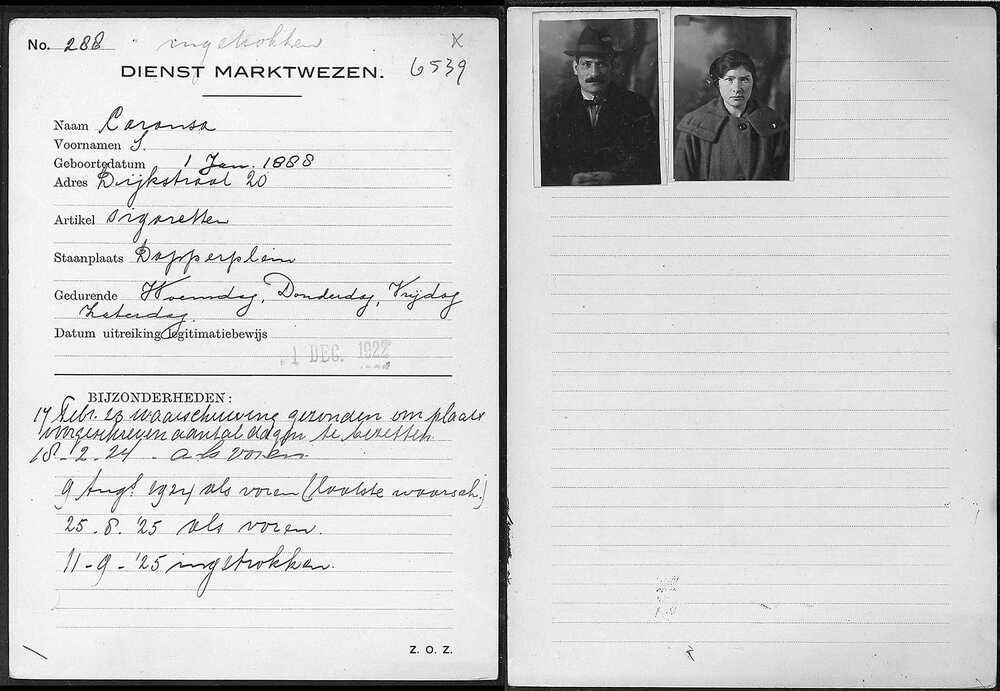 No. 288 ingetrokken X
DIENST MARKTWEZEN. 6539
Naam Caransa
Voornamen S.
Geboortedatum 1 Jan. 1888
Adres Dijkstraat 20
Artikel sigaretten
Staanplaats Dapperplein
Gedurende Woensdag, Donderdag, Vrijdag
Zaterdag.
Datum uitreiking legitimatiebewijs
1 DEC. 1922
BIJZONDERHEDEN:
17 Febr. 23 waarschuwing gezonden om plaats
voorgeschreven aantal dagen te bezetten.
18-12-24 - als voren.
9 Augt. 1924 als voren (laatste waarsch.)
25-8-'25 als voren.
11-9-'25 ingetrokken.
Z. O. Z.